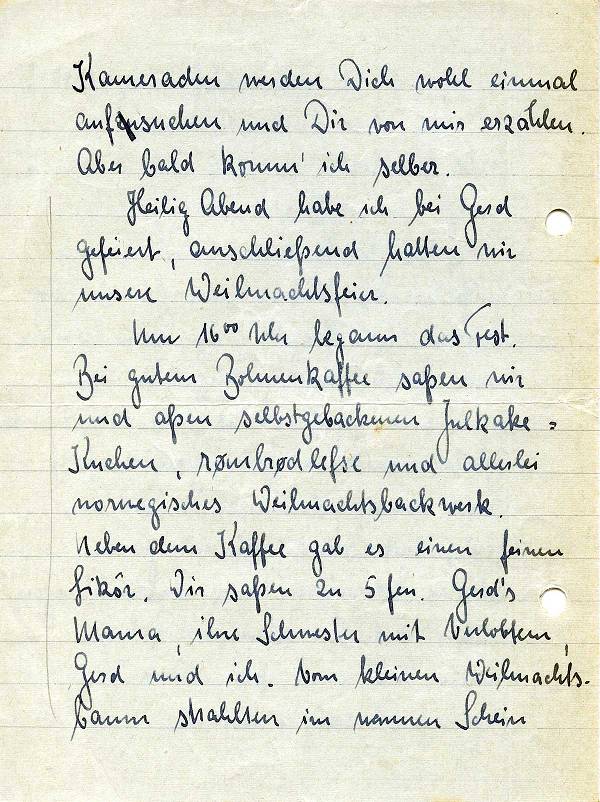 Kameraden werden Dich wohl einmal
aufsuchen und Dir von mir erzählen.
Aber bald komm' ich selber.
Heilig Abend habe ich bei Gerd
gefeiert, anschließend hatten wir
unsere Weihnachtsfeier.
Um 16⁰⁰ Uhr begann das Fest.
Bei gutem Bohnenkaffee saßen wir
und aßen selbstgebackenen Julkake =
Kuchen, rømbrødlefse und allerlei
norwegisches Weihnachtsbackwerk.
Neben dem Kaffee gab es einen feinen
Likör. Wir saßen zu 5 fen. Gerd's
Mama, ihre Schwester mit Verlobtem,
Gerd und ich. Vom kleinen Weihnachts-
baum strahlten im warmen Schein